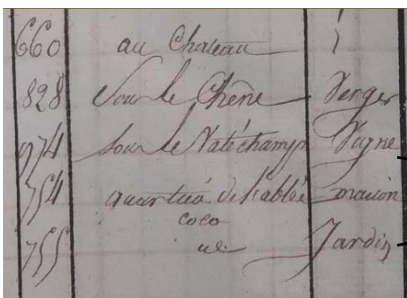 660 au Chateau
828 Sous le Chêne Verger
974 Sous le Vatéchamp Vigne
754 quartier de l'abbé maison
coco
755 id. Jardin